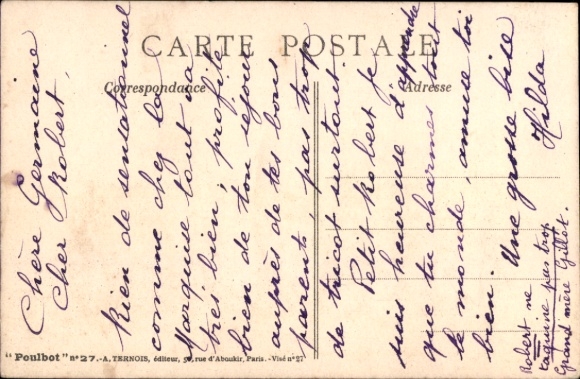 CARTE POSTALE
Correspondance
Adresse
Chère Germaine
Cher Robert,
Rien de sensationnel
comme chez la
Marquise tout va
très bien, profite
bien de ton séjour
auprès de tes bons
parents, pas trop
de tricot surtout.
Petit Robert je
suis heureuse d'apprendre
que tu charmes tout
le monde, amuse toi
bien. Une grosse bise
Hilda
Robert ne
taquine pas trop
Grand mère Gillot.
"Poulbot" n° 27.-A. TERNOIS, éditeur, rue d'Aboukir, Paris. -Visé n° 27